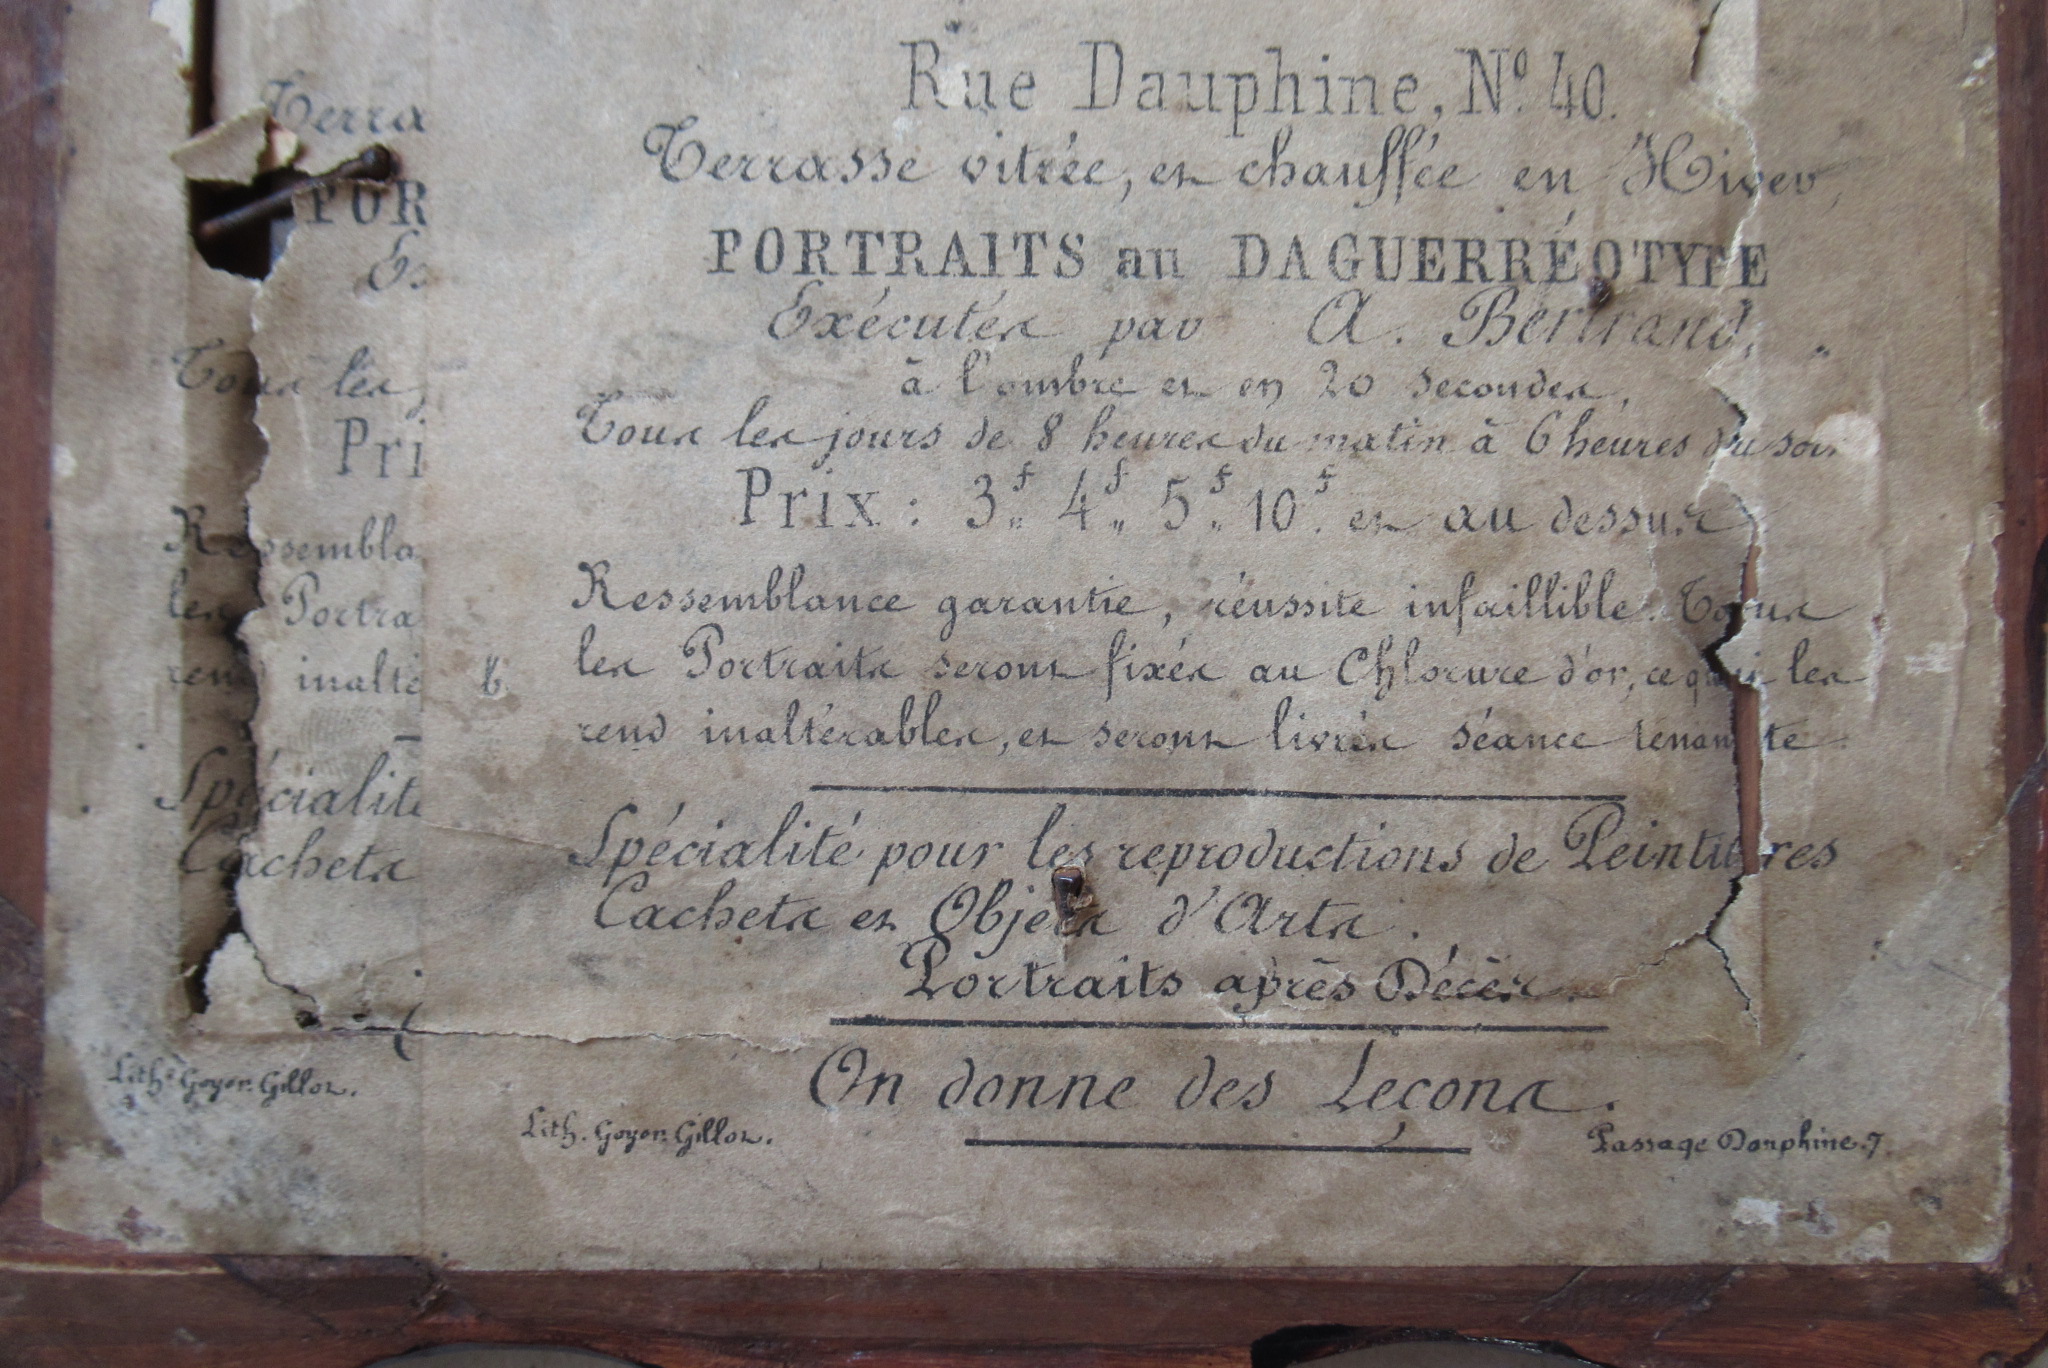 Rue Dauphine, Nº. 40.
Terrasse vitrée, et chauffée en Hiver,
PORTRAITS au DAGUERRÉOTYPE
Exécutés par A. Bertrand,
à l'ombre et en 20 secondes,
Tous les jours de 8 heures du matin à 6 heures du soir
Prix : 3f,, 4f,, 5f,, 10f. et au dessus
Ressemblance garantie, réussite infaillible. Tous
les Portraits seront fixés au Chlorure d'or, ce qui les
rend inaltérables, et seront livrés séance tenante
Spécialité pour les reproductions de Peintures
Cachets et Objets d'Arts.
Portraits après Décès.
On donne des Leçons.
Lith. Goyer. Gillot. Passage Dauphine. 7.
Terra
POR
Ex
Tous les j
Pri
Ressembla
les Portra
rend inalté
Spécialité
Cachets
Lith. Goyer. Gillot.